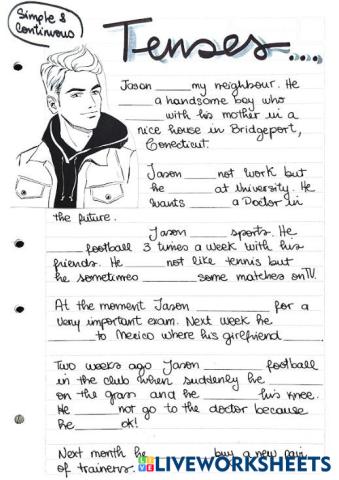 Simple &
Continuous
Tenses....
Jason ______ my neighbour. He
____ a handsome boy who
______ with his mother in a
nice house in Bridgeport,
Conecticut.
Jason ______ not work but
he ______ at University. He
wants ______ a Doctor in
the future.
Jason ______ sports. He
______ football 3 times a week with his
friends. He ______ not like tennis but
he sometimes ______ some matches on TV.
At the moment Jason ______ for a
very important exam. Next week he
______ to Mexico where his girlfriend ______.
Two weeks ago Jason ______ football
in the club when suddenly he ______
on the grass and he ______ his knee.
He ______ not go to the doctor because
he ______ ok!
Next month he ______ buy a new pair
of trainers.
LIVEWORKSHEETS